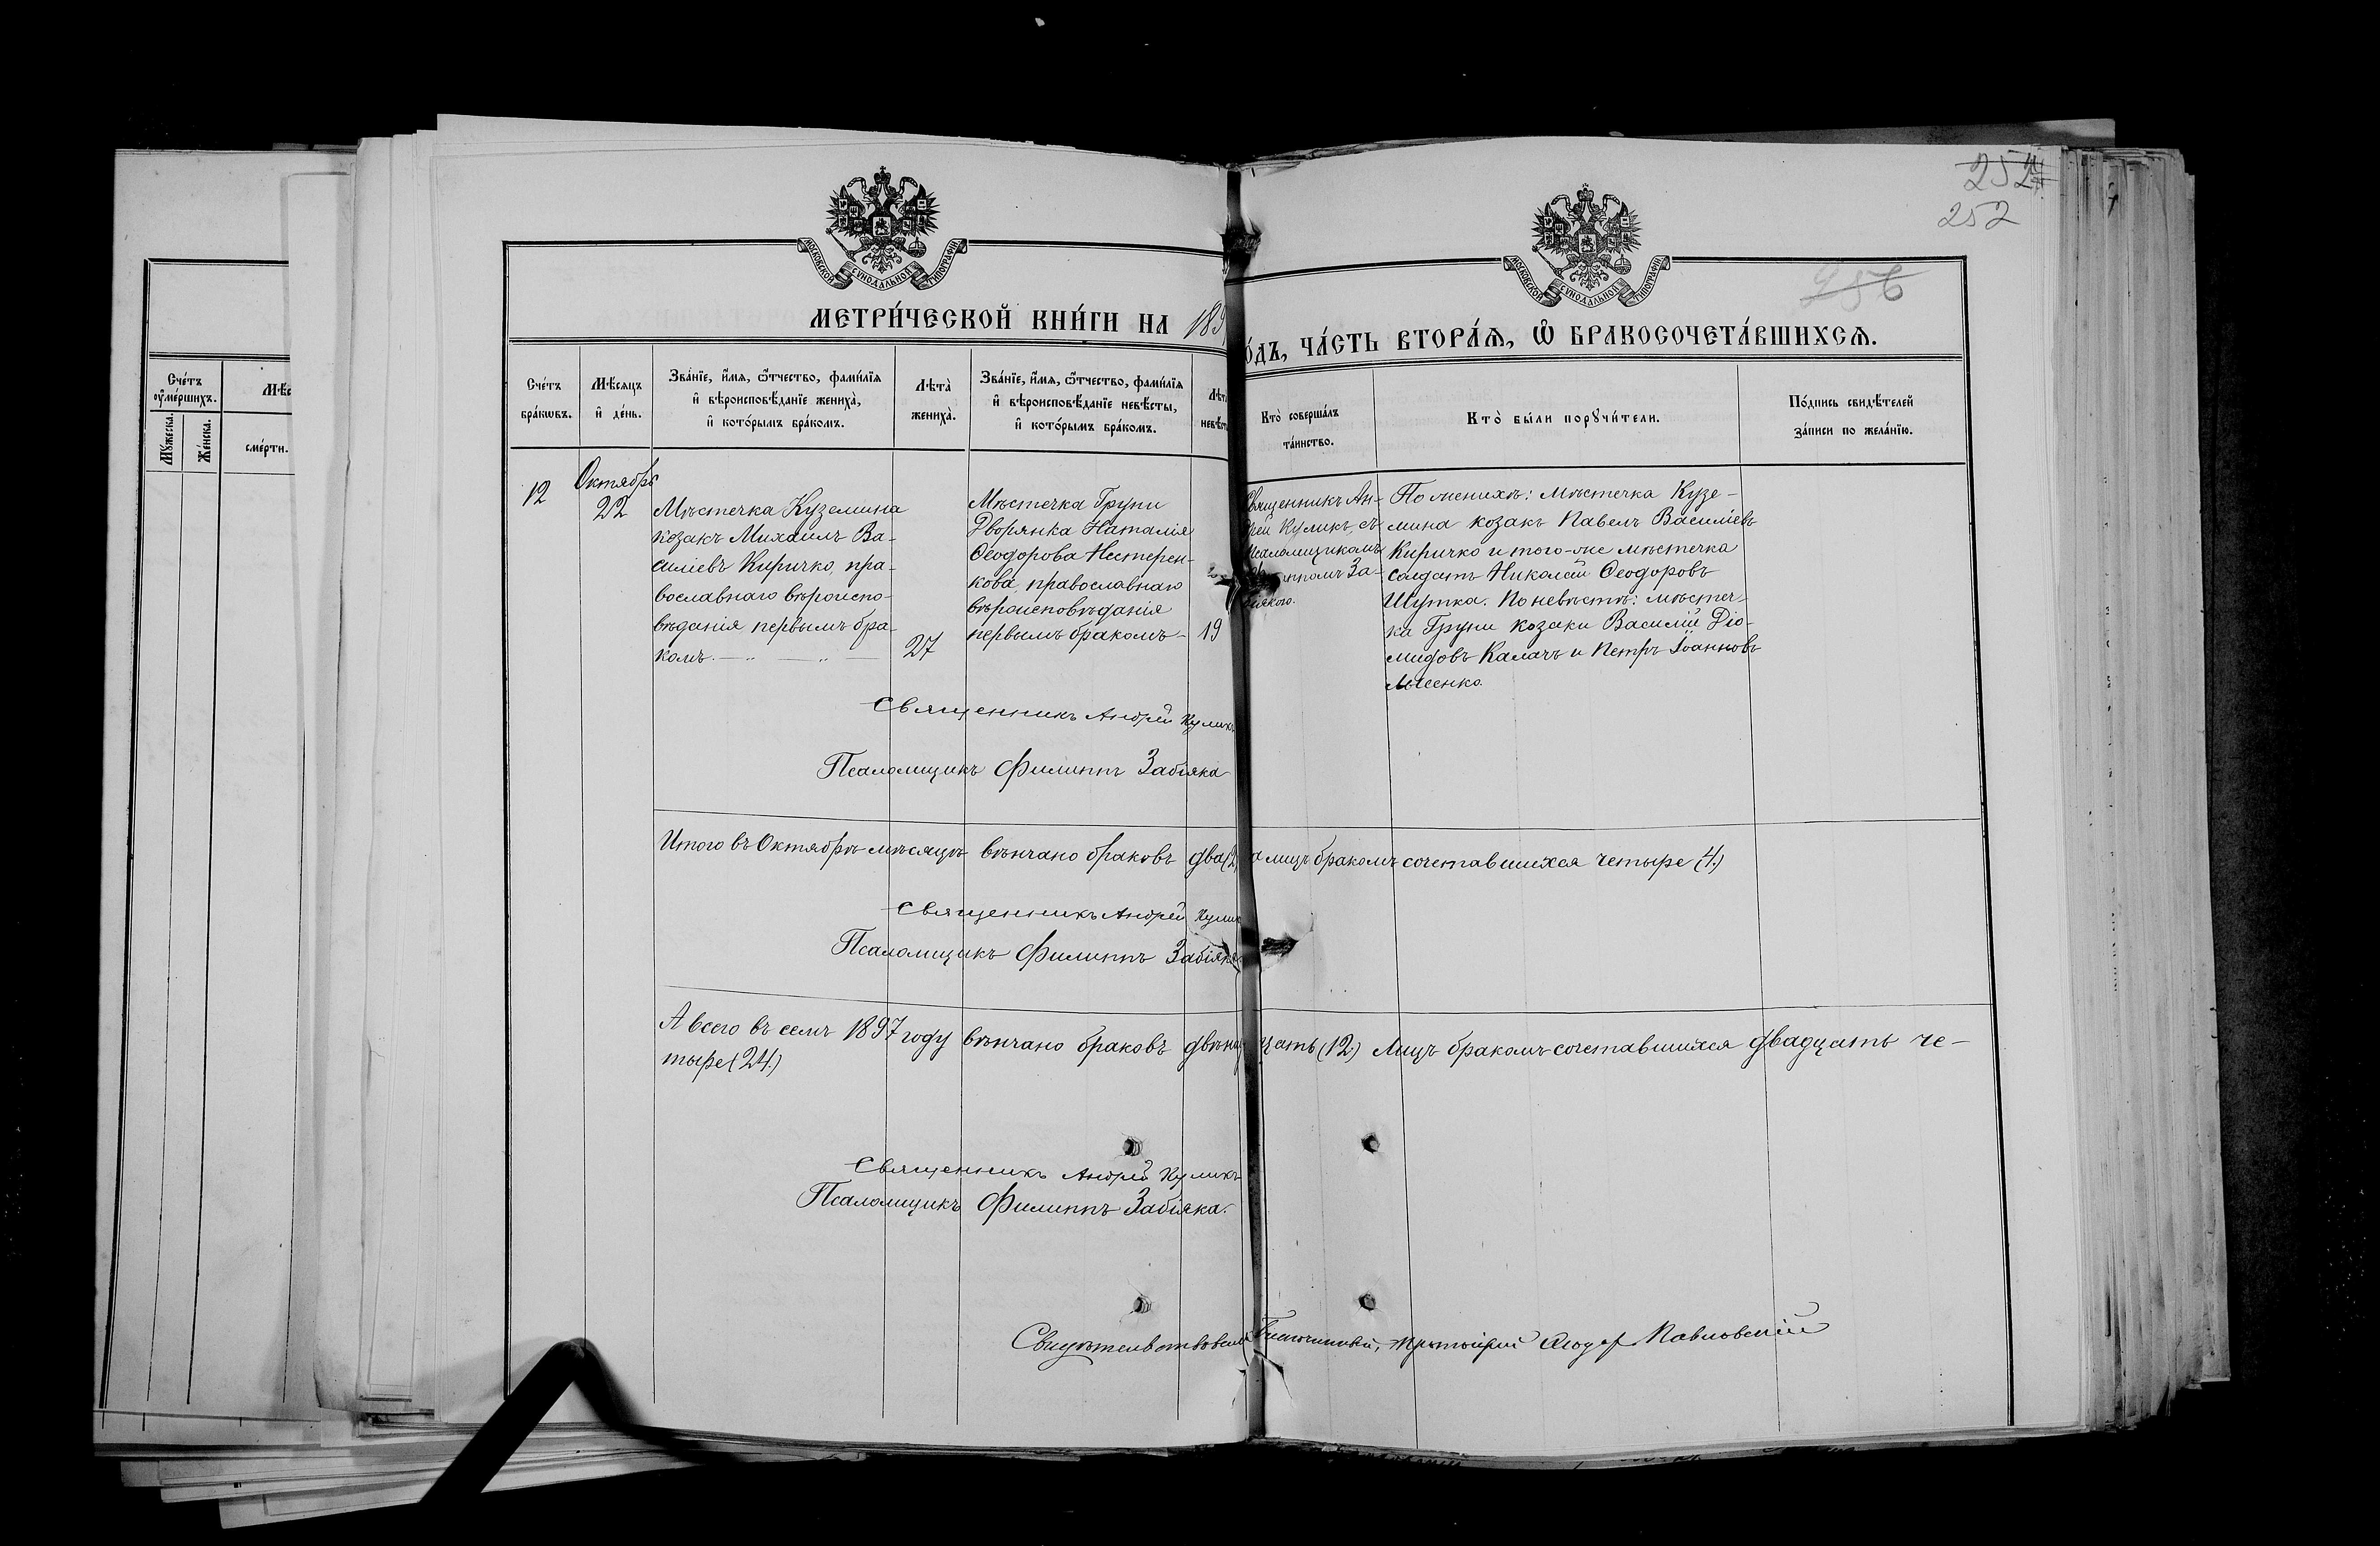 МОСКОВСКОЙ СѴНОДАЛЬНОЙ ТИПОГРАФІИ
МОСКОВСКОЙ СѴНОДАЛЬНОЙ ТИПОГРАФІИ
252
252
256
МЕТРИ́ЧЕСКОЙ КНИ́ГИ НА 189
О́ДЪ, ЧА́СТЬ ВТОРА́Ѧ, Ѿ БРАКОСОЧЕТА́ВШИХСѦ.
Сче́тъ
оумершихъ.
Мѣс
Мꙋжеска.
Же́нска.
сме́рти.
Сче́тъ
бра́кѡвъ.
Мѣ́сѧцъ
и҆ де́нь.
Зва́нїе, и҆́мѧ, ѻ҆́тчество, фами́лїѧ
и҆ вѣроисповѣ́данїе жениха̀,
и҆ кото́рымъ бра́комъ.
Лѣта̀
жениха̀.
Зва́нїе, и҆́мѧ, ѻ҆́тчество, фами́лїѧ
и҆ вѣроисповѣ́данїе невѣ́сты,
и҆ кото́рымъ бра́комъ.
Лѣт
невѣст
Кто̀ соверша́лъ
та́инство.
Кто̀ бы́ли порꙋчи́тели.
По́дпись свидѣ́телей
за́писи по жела́нїю.
12
Октябрь
22
Мѣстечка Куземина
козакъ Михаилъ Ва-
силіевъ Киричко, пра-
вославнаго вѣроиспо-
вѣданія первымъ бра-
комъ.
27
Мѣстечка Груни
Дворянка Наталія
Ѳеодорова Нестерен-
кова, православнаго
вѣроисповѣданія
первымъ бракомъ-
19
Священникъ Ан-
дрей Куликъ, съ
Псаломщикомъ
За-
біякою.
По женихѣ: мѣстечка Кузе-
мина козакъ Павелъ Василіевъ
Киричко и того-же мѣстечка
солдатъ Николай Ѳеодоровъ
Шутка. По невѣстѣ: мѣстеч-
ка Груни козаки Василій Діо-
мидовъ Калачъ и Петръ Іоанновъ
Мисенко.
Священникъ Андрей Куликъ
Псаломщикъ Филиппъ Забіяка
Итого въ Октябрѣ мѣсяцѣ вѣнчано браковъ два (2) а лицъ бракомъ сочетавшихся четыре (4.)
Священникъ Андрей Кулик
Псаломщикъ Филиппъ Забіяка
А всего въ семъ 1897 году вѣнчано браковъ двѣнадцать (12) лицъ бракомъ сочетавшихся двадцать че-
тыре (24.)
Священникъ Андрей Куликъ
Псаломщикъ Филиппъ Забіяка.
Свидѣтельствовалъ Благочинный, Протоіерей Ѳеодоръ Павловскій